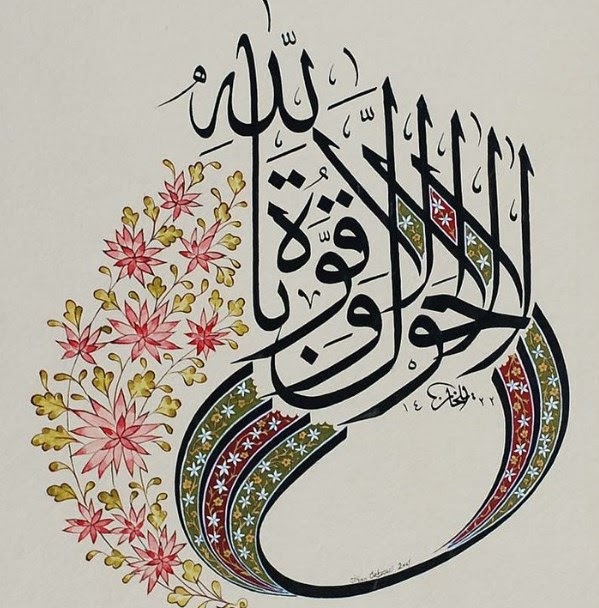 لا حول ولا قوة إلا بالله
١٤٢٢
2001